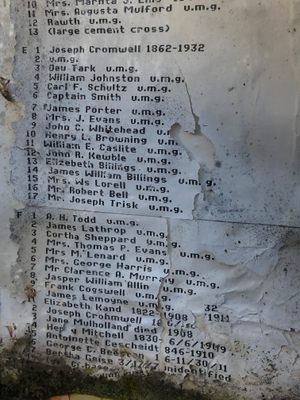 10 Mrs.
11 Mrs. Augusta Mulford u.m.g.
12 Rawth u.m.g.
13 (large cement cross)
E 1 Joseph Cromwell 1862-1932
2 u.m.g.
3 Dau Tark u.m.g.
4 William Johnston u.m.g.
5 Carl F. Schultz u.m.g.
6 Captain Smith u.m.g.
7 James Porter u.m.g.
8 Mrs. J. Evans u.m.g.
9 John C. Whitehead u.m.g.
10 Henry L. Browning u.m.g.
11 William E. Caslite u.m.g.
12 John R. Kewble u.m.g.
13 Elizebeth Billings u.m.g.
14 James William Billings u.m.g.
15 Mrs. Ws Lorell u.m.g.
16 Mr. Robert Bell u.m.g.
17 Mr. Joseph Trisk u.m.g.
F 1 A. H. Todd u.m.g.
2 James Lathrop u.m.g.
3 Cortha Sheppard u.m.g.
4 Mrs. Thomas P. Evans u.m.g.
5 Mrs M. Lenard u.m.g.
6 Mrs. George Harris u.m.g.
7 Mr Clarence A. u.m.g.
8 Jasper William Allin u.m.g.
9 Frank Cogswell u.m.g.
James Lemoyne u.m.g.
Elizabeth Kand 1822-1908
Joseph Cromwell
Jane Mulholland died 1908
Mitchell 1830- 6/6/1909
Antoinette Cescheidt 846-1910
George C. 6-11/30/11
Bertha Geise unidentified
u.m.g.